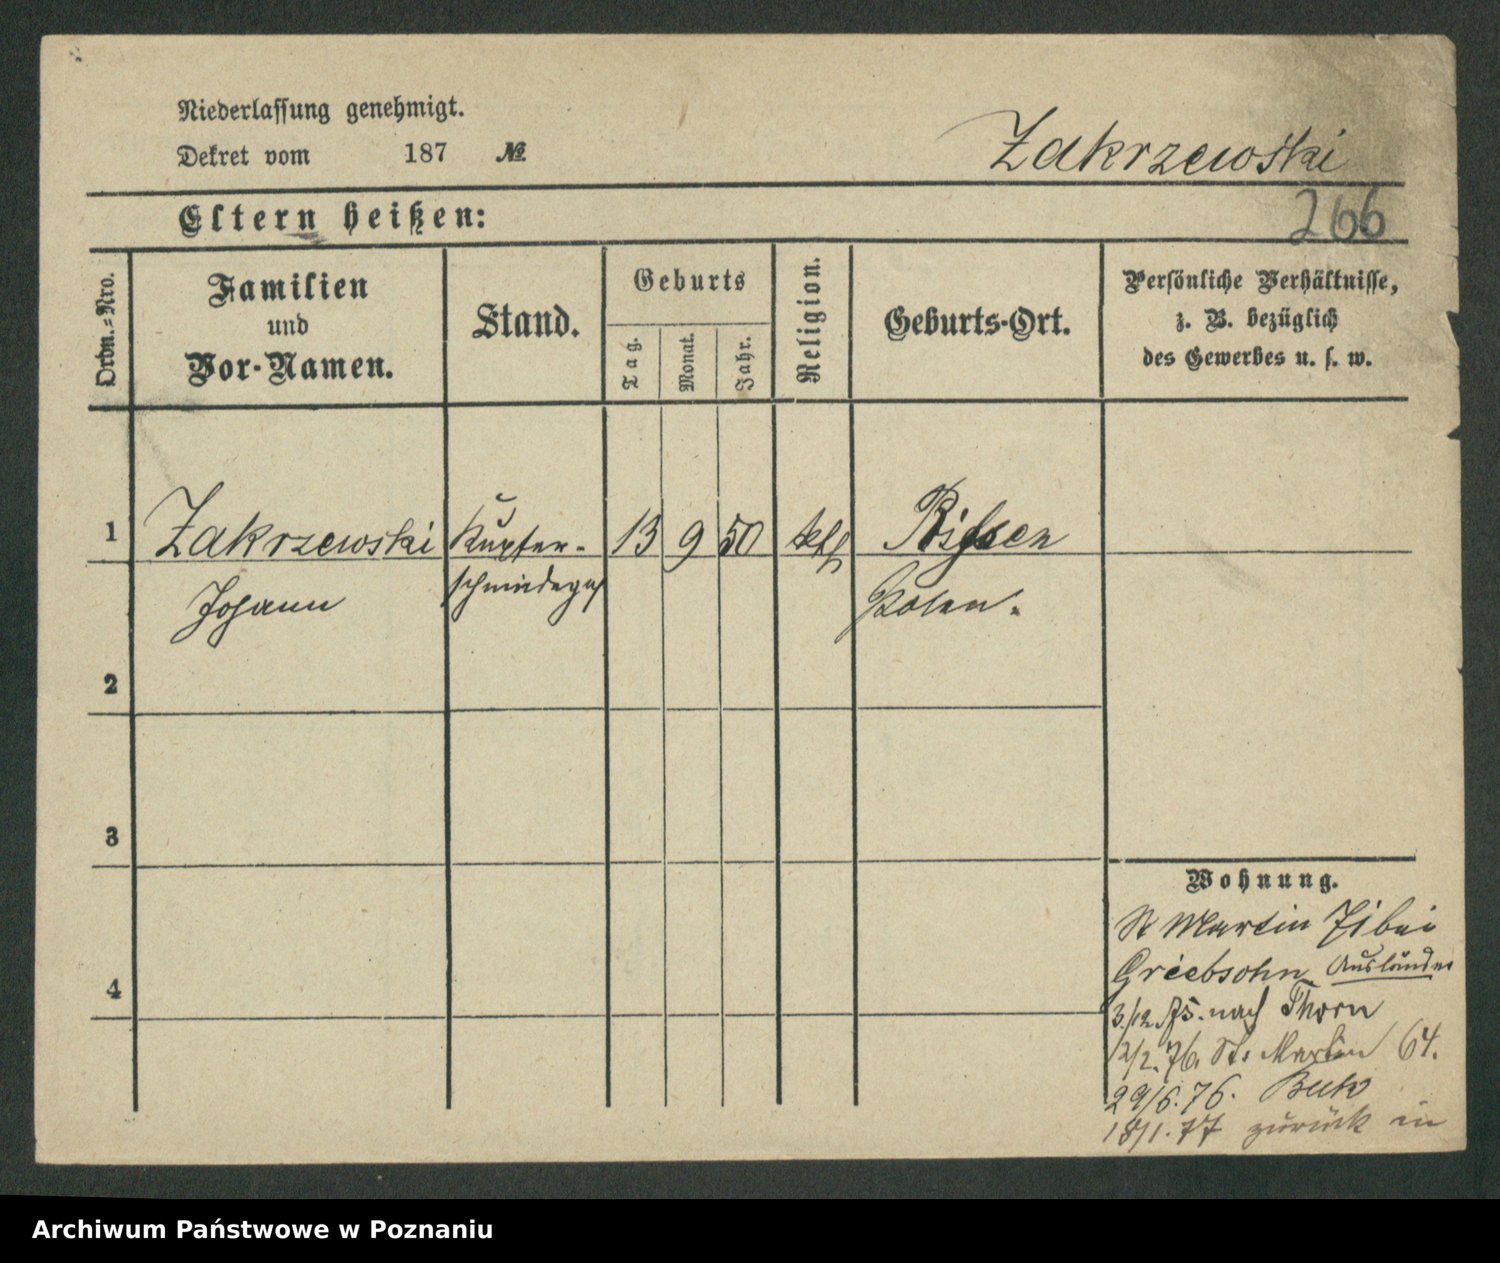 Niederlassung genehmigt.
Dekret vom 187 №
Zakrzewski
266
Eltern heißen:
Ordn.-Nro.
Familien
und
Vor-Namen.
Stand.
Geburts
Tag.
Monat.
Jahr.
Religion.
Geburts-Ort.
Persönliche Verhältnisse,
z. B. bezüglich
des Gewerbes u. s. w.
1
Zakrzewski Kupfer- 13 9 50 kth
Johann schmiedeges Polen.
2
3
4
Wohnung.
St Martin 71 bei
Griebsohn Ausländer
3/12.75. nach Thorn
12/2.76. St. Martin 64.
29/6.76. Buk
18/1.77 zurück in
Archiwum Państwowe w Poznaniu